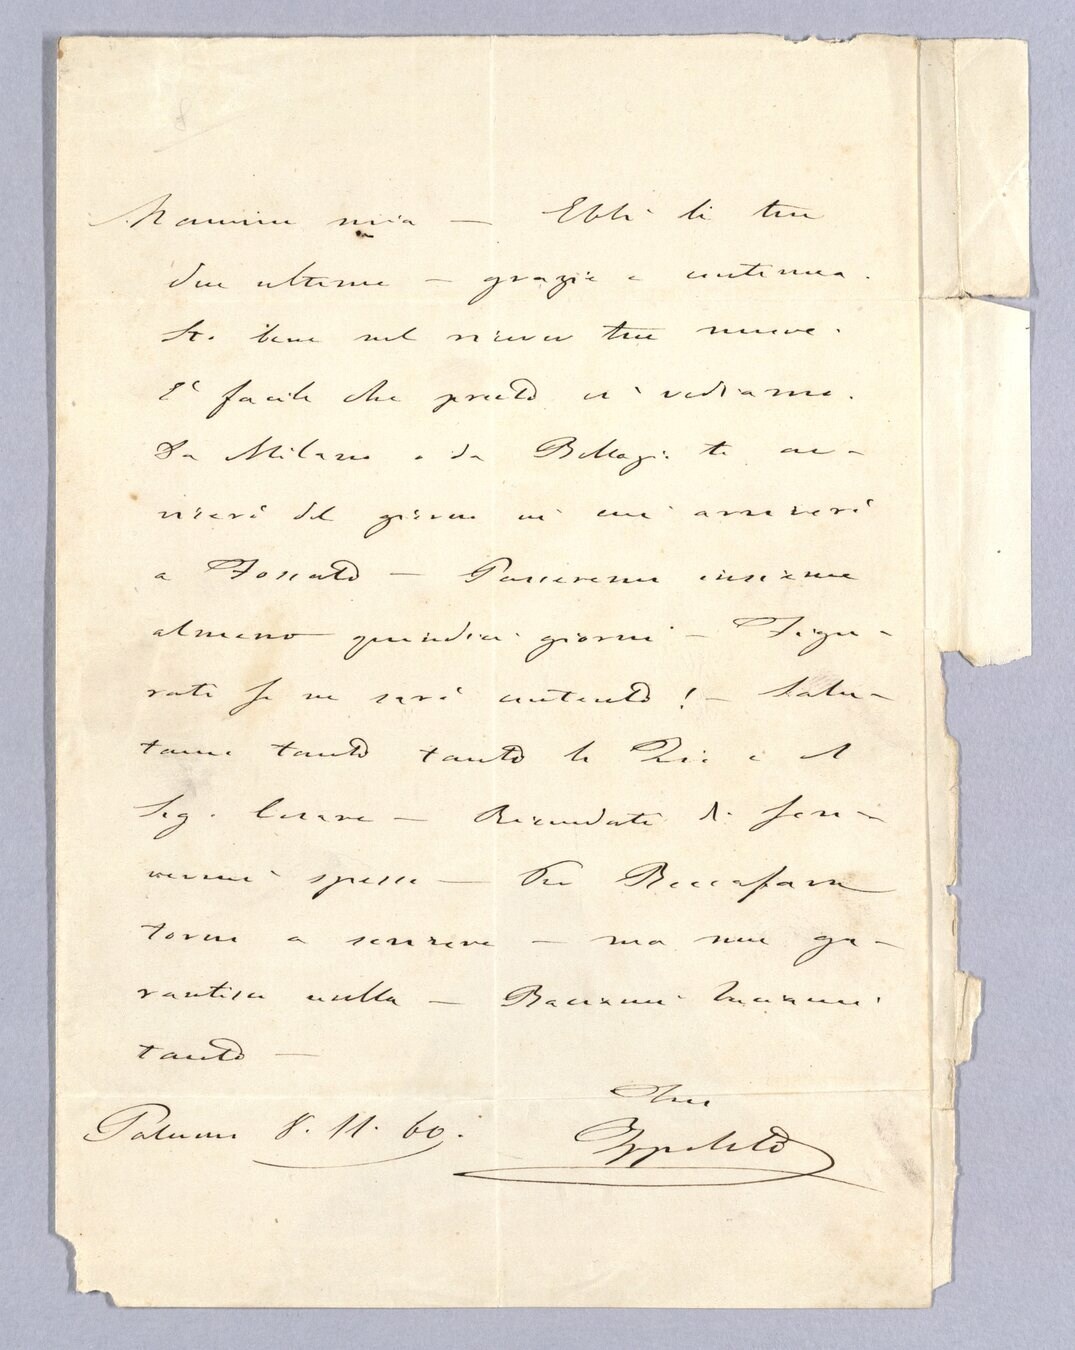 Mammina mia — Ebbi le tue
due ultime — grazie e continua.
Sto bene nel ricever tue nuove.
E' facile che presto ci vediamo.
Da Milano o da Bellagio ti av-
viserò del giorno in cui arriverò
a Fossato — Passeremo insieme
almeno quindici giorni — Figu-
rati se ne sarò contento! — Salu-
tami tanto tanto la Zia e il
Sig. Cesare — Ricordati di scri-
vermi spesso — Per Beccafava
torno a scrivere — ma non ga-
rantisco nulla — Baciami baciami
tanto —
Tuo
Palermo 8. 11. 60. Ippolito